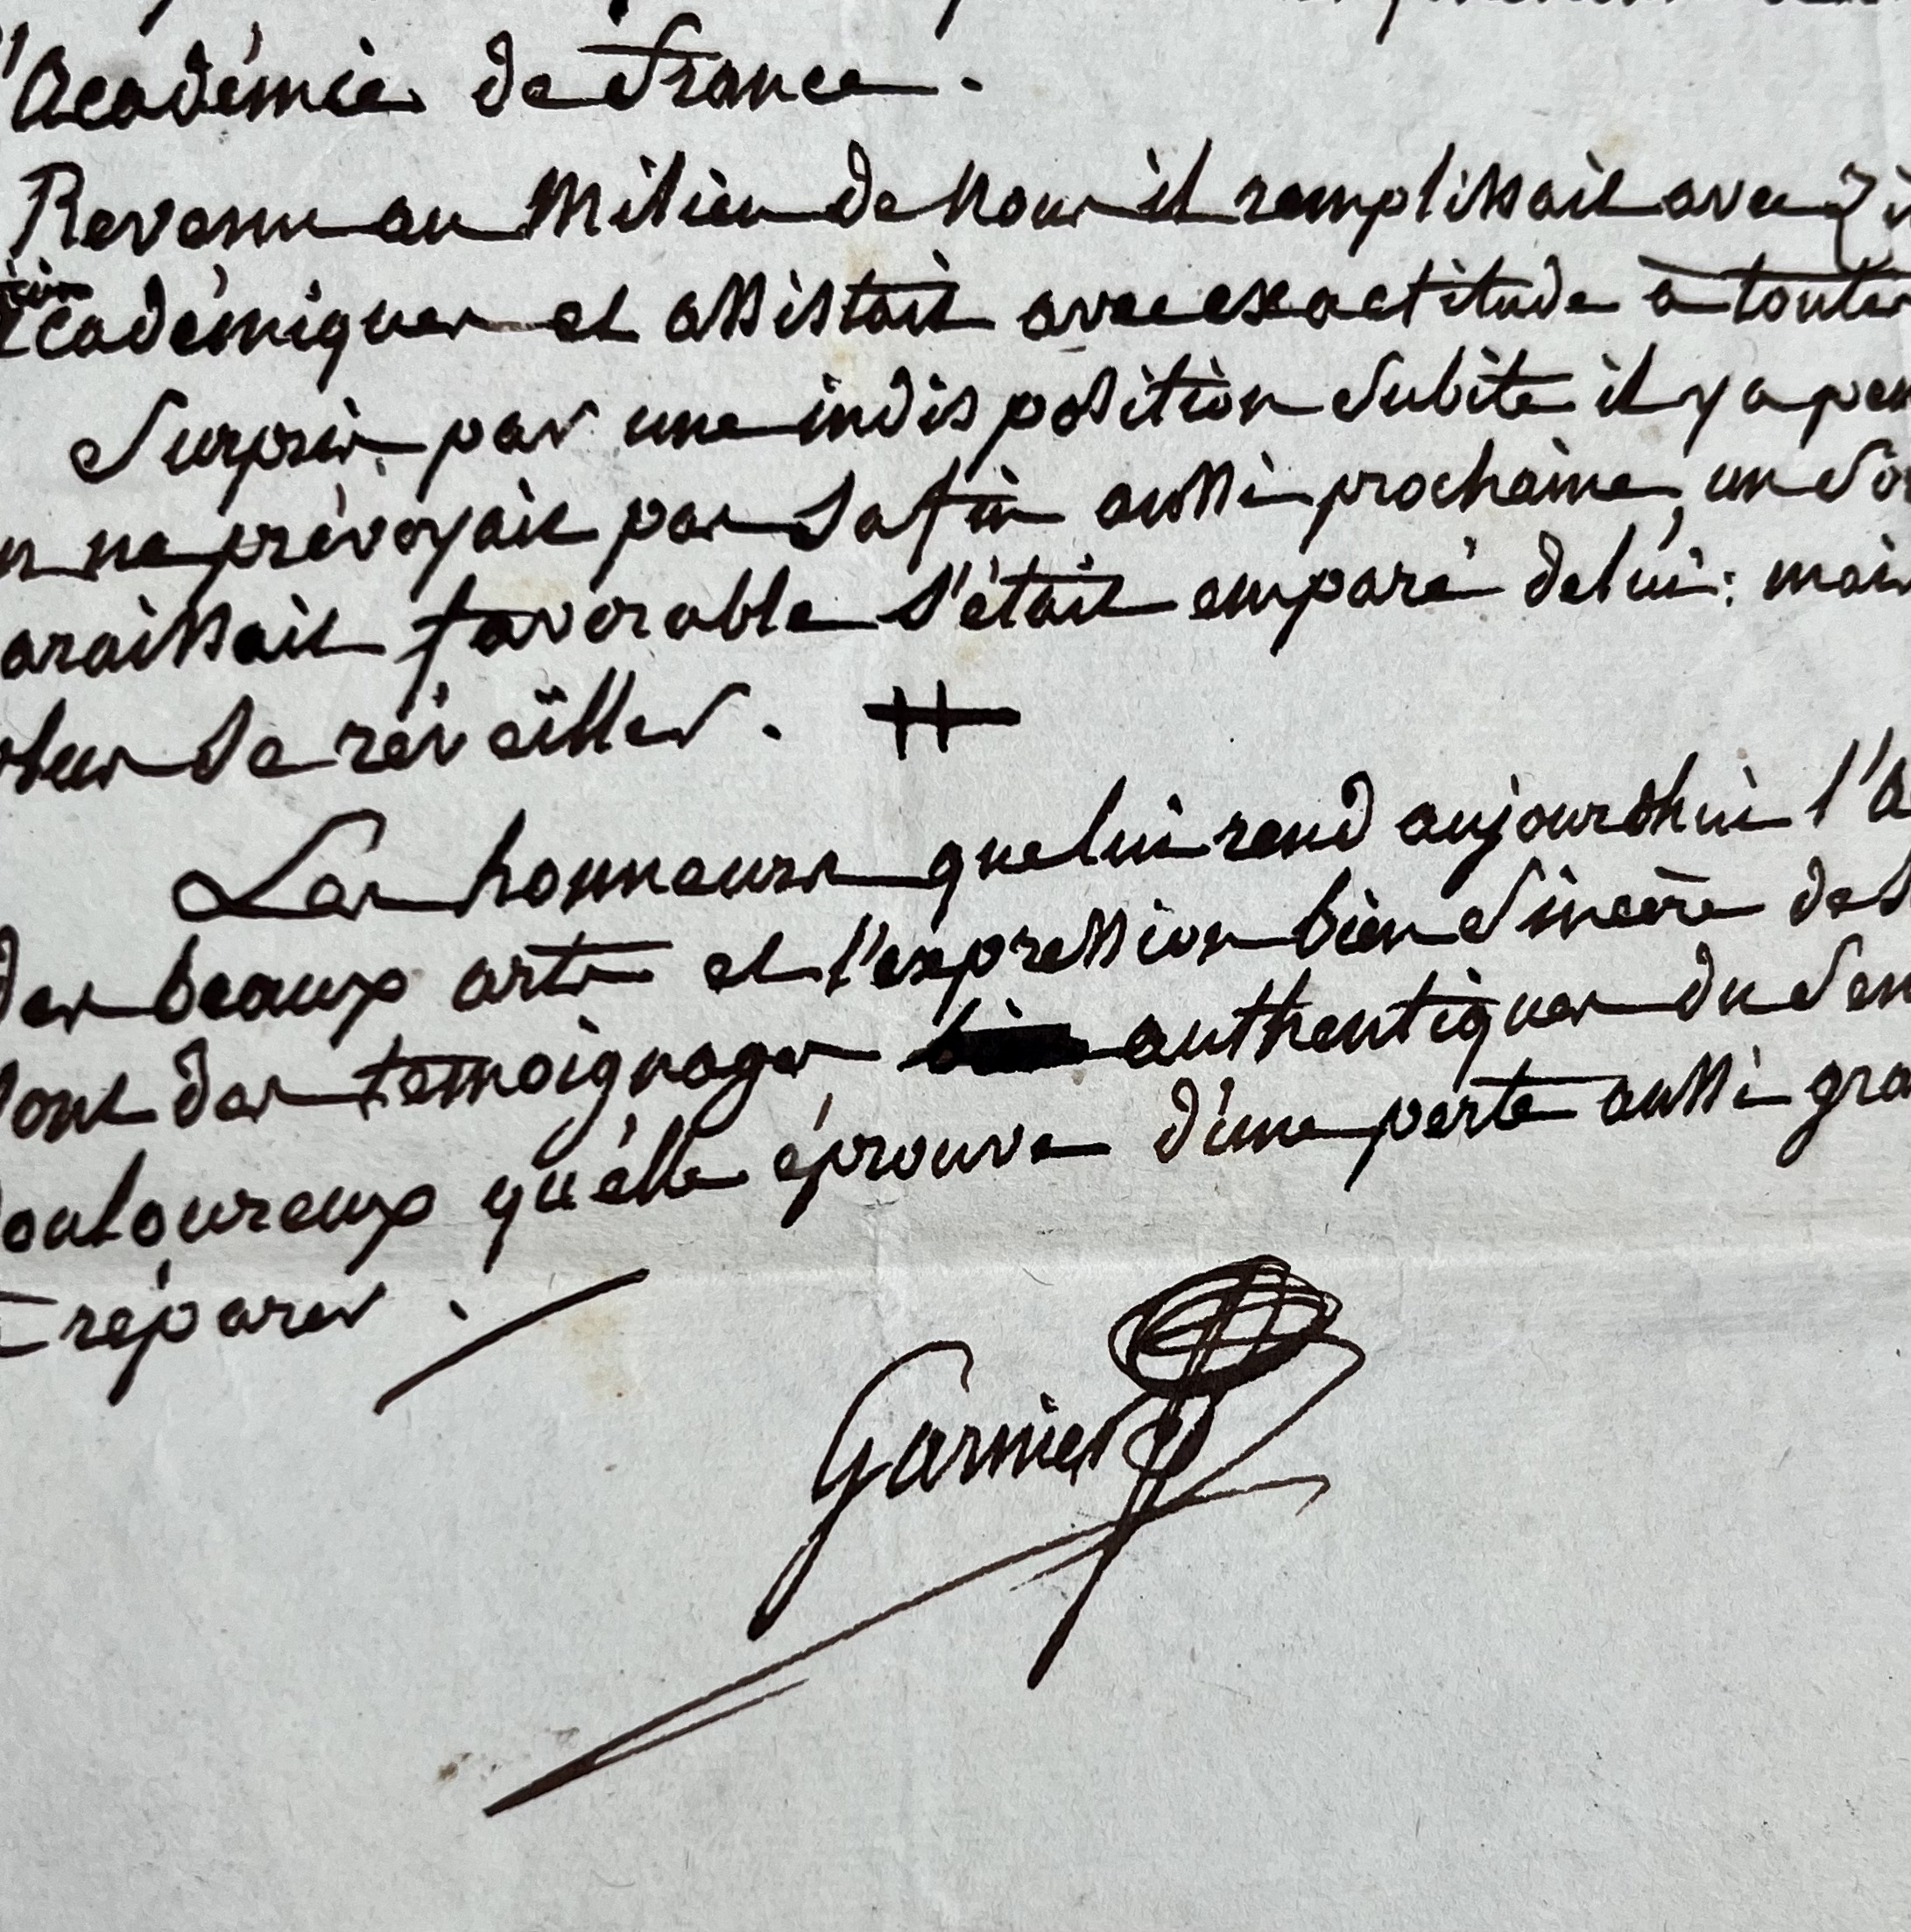 l'académie de france.
Revenu au milieu de nous il remplissait avec
académiques et assistait avec exactitude à toutes
Surpris par une indisposition subite il y a peu
n ne prévoyait pas sa fin aussi prochaine, un so
araissait favorable s'était emparé de lui: mais
se réveiller.
Les honneurs que lui rend aujourdhui l'a
des beaux arts et l'expression bien sincère de s
sont des temoignages authentiques du sen
douloureux qu'elle éprouve d'une perte aussi gra
réparer.
Garnier